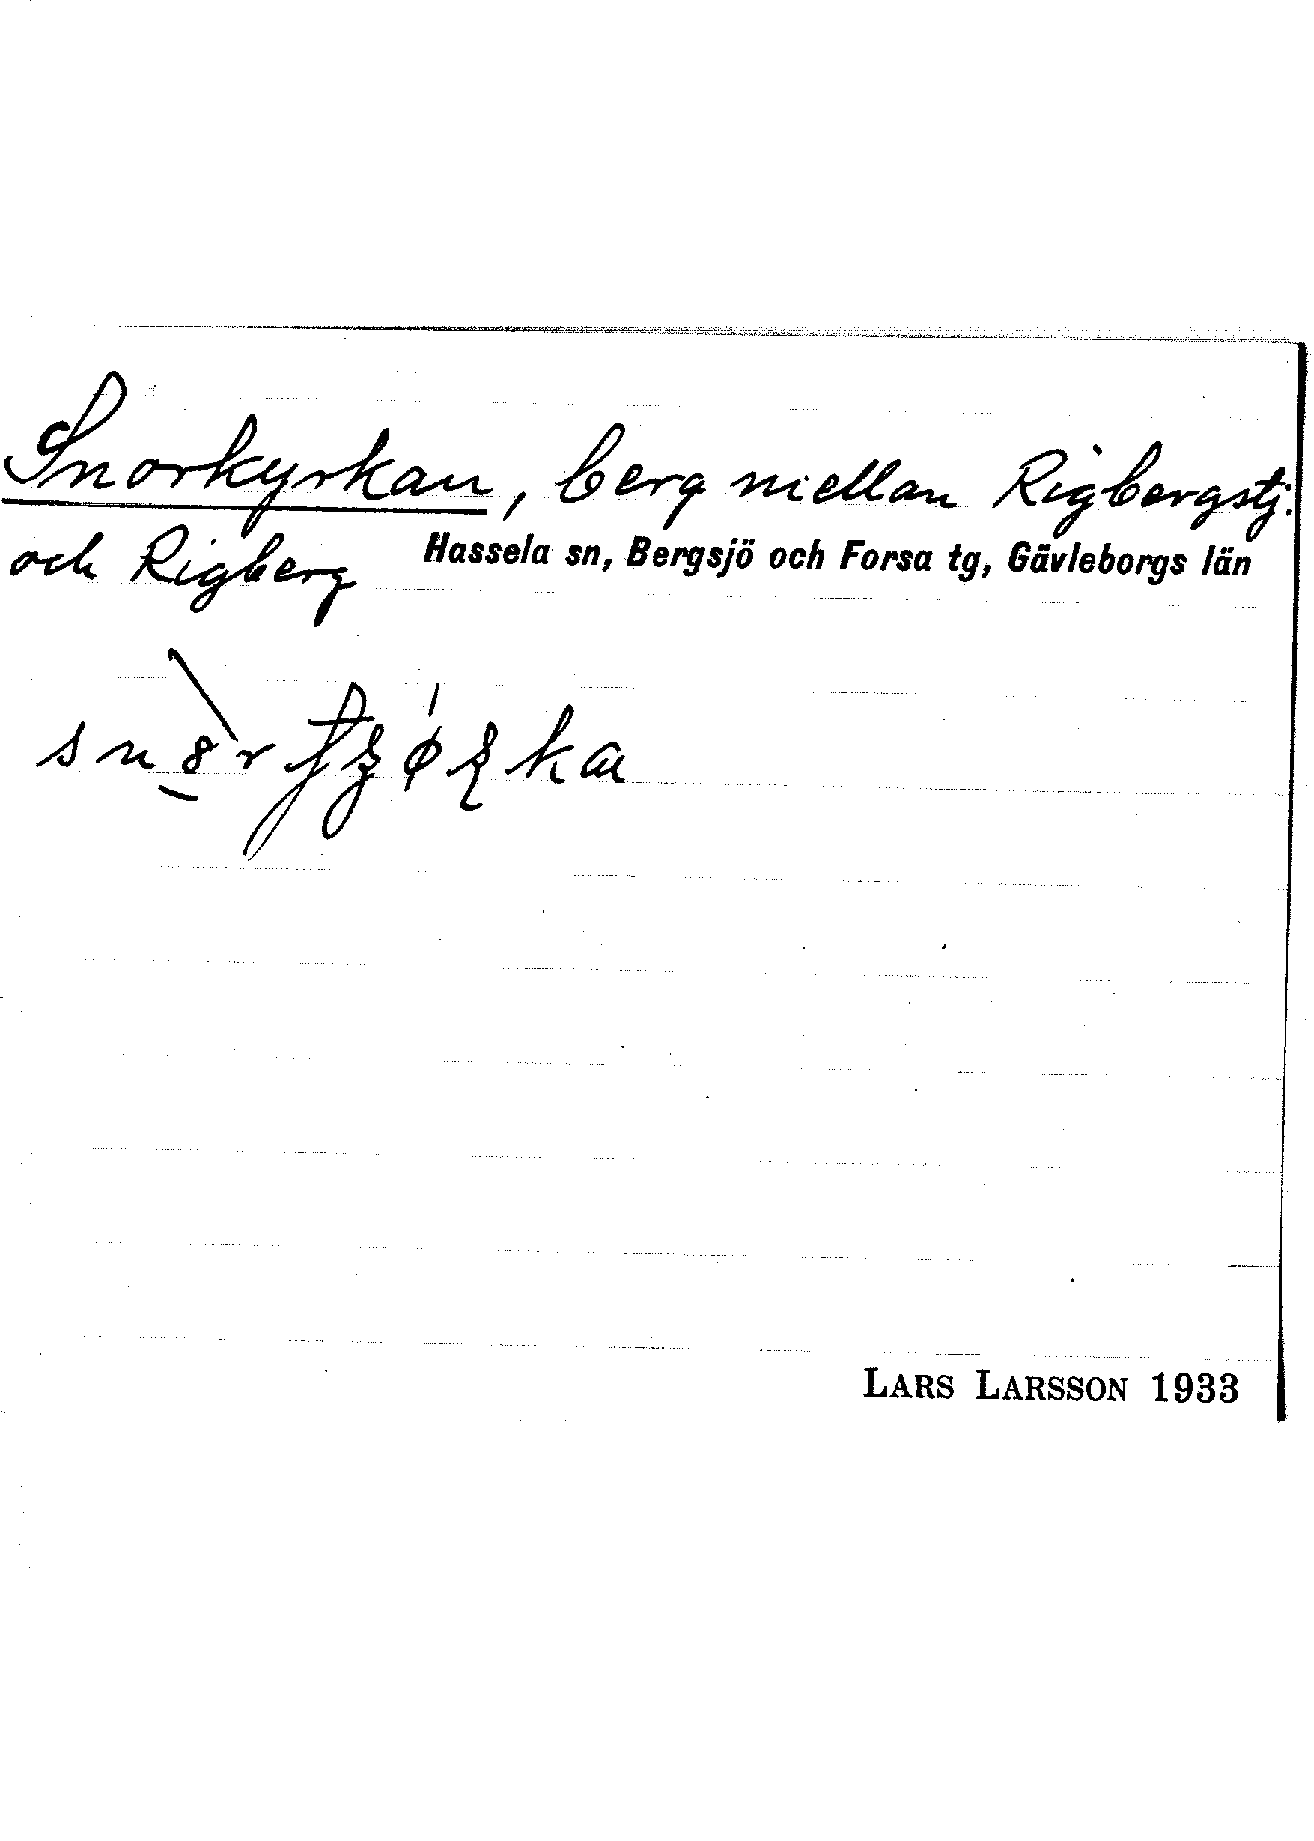 Snorkyrkan, berg mellan Rigbergstj.
och Rigberg Hassela sn, Bergsjö och Forsa tg, Gävleborgs län
LARS LARSSON 1933